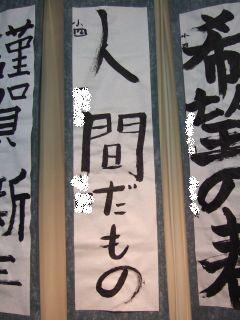 希望の春
十
小四
人間だもの
謹賀新